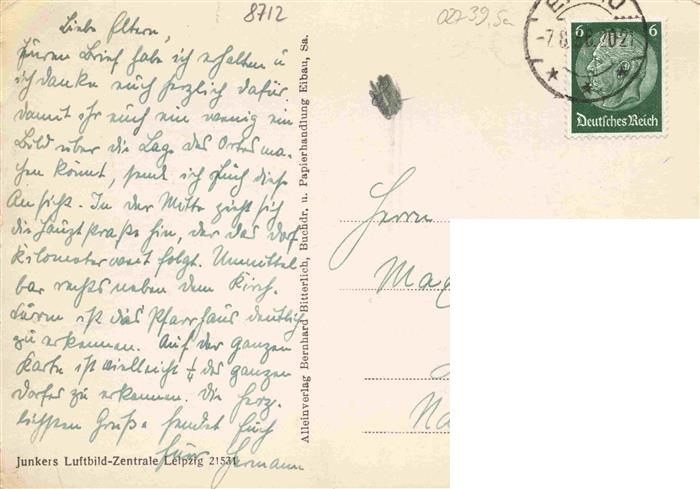 8712
02739, Sa
Liebe Eltern,
Euren Brief habe ich erhalten u
ich danke euch herzlich dafür
damit ihr euch ein wenig ein
Bild über die Lage des Ortes ma-
chen könnt, sende ich Euch diese
Ansicht. In der Mitte zieht sich
die Hauptstraße hin, der das Dorf
kilometerweit folgt. Unmittel
bar rechts neben dem Kirch-
turm ist das Pfarrhaus deutlich
zu erkennen. Auf der ganzen
Karte ist vielleicht ¼ des ganzen
Dorfes zu erkennen. Die herz-
lichsten Grüße sendet Euch
Euer Hermann
Junkers Luftbild-Zentrale Leipzig 21531
Alleinverlag Bernhard Bitterlich, Buchdr. u. Papierhandlung Eibau, Sa.
-7.8. 20-21
6 6
Deutsches Reich
Herrn